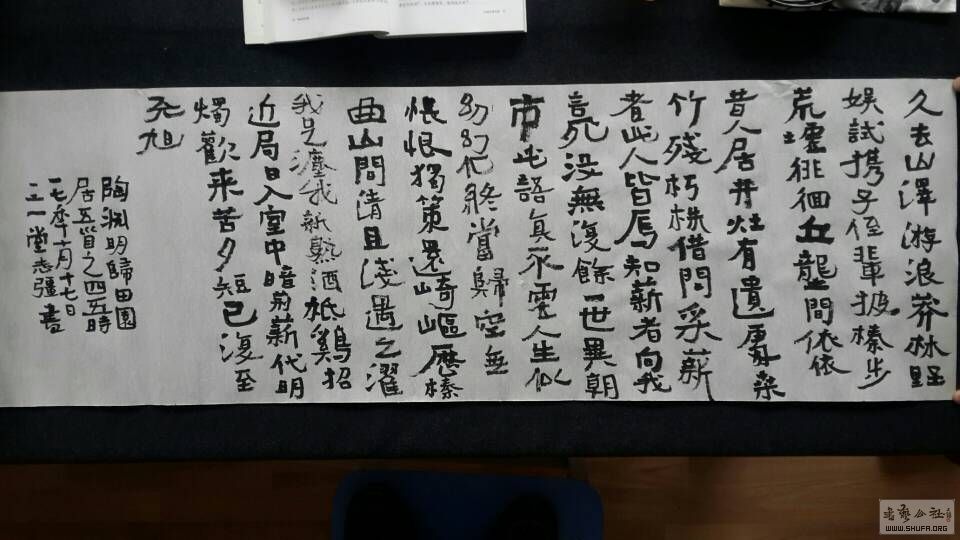 久去山澤游浪莽林野
娱試攜子侄輩披榛步
荒墟徘徊丘壟間依依
昔人居井灶有遺處桑
竹殘朽株借問采薪
者此人皆焉如薪者向我
言死没無復餘一世異朝
市此語真不虚人生似
幻化終當歸空無
悵恨獨策還崎嶇歷榛
曲山間清且淺遇之濯
我足漉我新熟酒秖鷄招
近局日入室中暗荊薪代明
燭歡来苦夕短已復至
天旭
陶淵明歸田園
居五首之四五時
一七年六月十七日
三一堂志強書
WWW.SHUFA.ORG